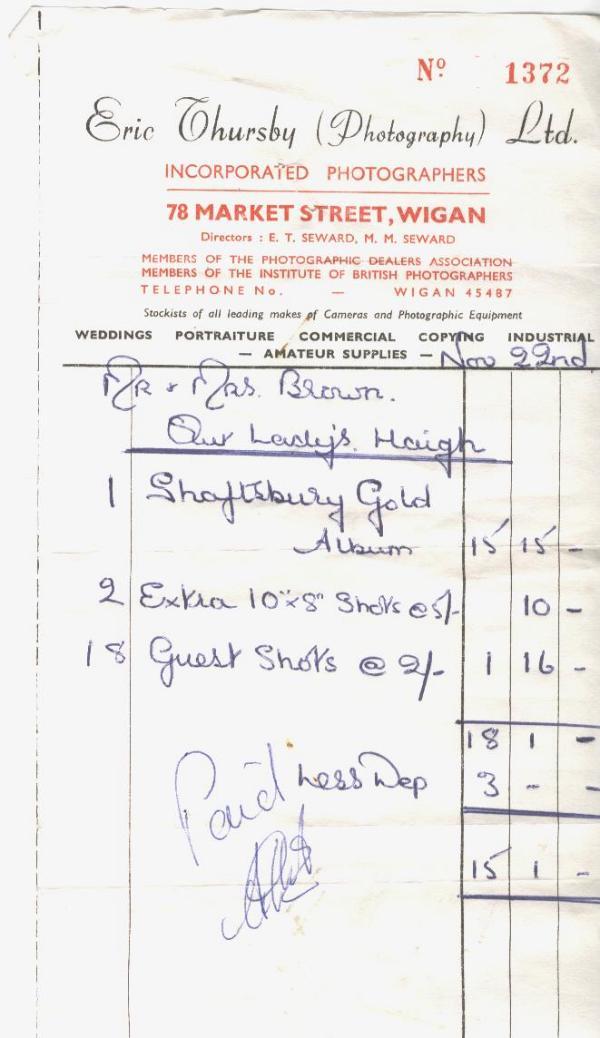 Nº 1372
Eric Thursby (Photography) Ltd.
INCORPORATED PHOTOGRAPHERS
78 MARKET STREET, WIGAN
Directors : E. T. SEWARD, M. M. SEWARD
MEMBERS OF THE PHOTOGRAPHIC DEALERS ASSOCIATION
MEMBERS OF THE INSTITUTE OF BRITISH PHOTOGRAPHERS
TELEPHONE No. — WIGAN 45487
Stockists of all leading makes of Cameras and Photographic Equipment
WEDDINGS PORTRAITURE COMMERCIAL COPYING INDUSTRIAL
— AMATEUR SUPPLIES — Nov 22nd
Mr & Mrs. Brown.
Our Lady's. Haigh
1 Shaftsbury Gold
Album 15 15 -
2 Extra 10"x8" Shots @ 5/- 10 -
18 Guest Shots @ 2/- 1 16 -
18 1 -
Less Dep 3 - -
Paid
15 1 -